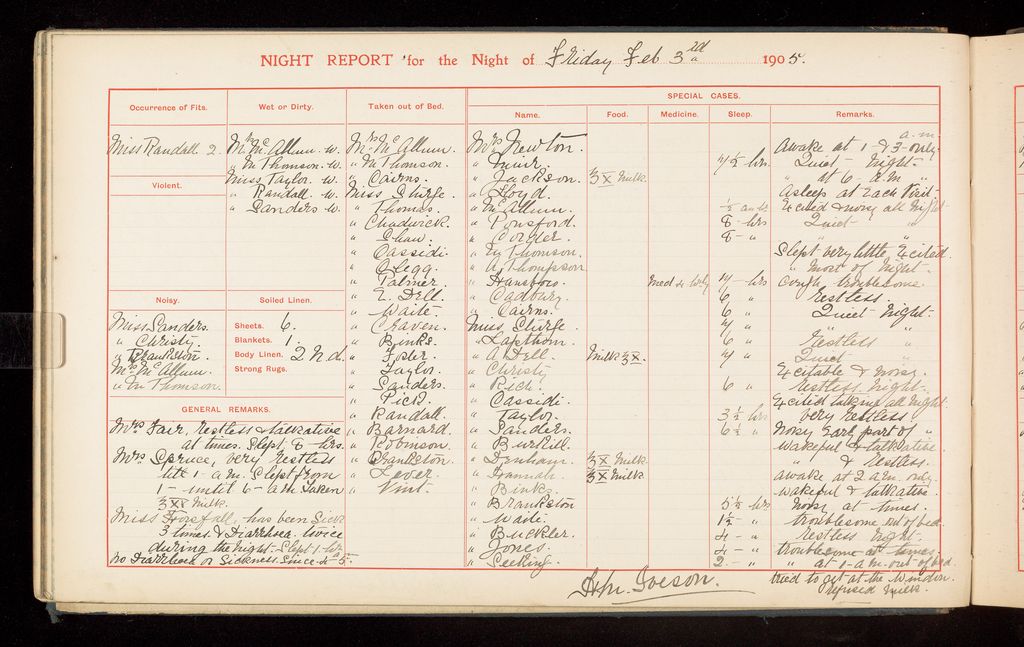 NIGHT REPORT for the Night of Friday Feb 3rd 1905.
Occurrence of Fits.
Miss Randall. 2.
Violent.
Noisy.
Miss Sanders.
" Christy.
" Brankston.
Mrs McAllum.
" M Thomson.
Wet or Dirty.
Mrs McAllum. W.
" M Thomson. W.
Miss Taylor. W.
" Randall. W.
" Sanders W.
Soiled Linen.
Sheets. 6.
Blankets. 1.
Body Linen. 2 N.d.
Strong Rugs.
GENERAL REMARKS.
Mrs Fair, restless & talkative
at times. Slept 8 hrs.
Mrs Spruce, very restless
till 1- a.m. Slept from
1- until 6- a.m. Taken
Milk.
Miss Horsfall, has been Sick
3 times. & Diarrhoea. twice
during the night. Slept 1- hrs
No Diarrhoea or Sickness. Since 4-
Taken out of Bed.
Mrs McAllum.
" M Thomson.
" Cairns.
Miss Sturge.
" Thomas.
" Chadwick.
" Shaw.
" Cassidi.
" Clegg.
" Palmer.
" E. Dell.
" Waite.
" Craven.
" Binks.
" Foster.
" Taylor.
" Sanders.
" Pick.
" Randall.
" Barnard.
" Robinson.
" Brankston.
" Lever.
" Vint.
SPECIAL CASES.
Name. Food. Medicine. Sleep. Remarks.
Mrs Newton. Awake at 1- & 3- only a.m.
" Muir. 7½ hrs Quiet night-
" Jackson. Milk " at 6- a.m "
" Lloyd. asleep at each Visit-
" McAllum. ½ an hr Excited & noisy all Night
" Ponsford. 8- hrs Quiet "
" Corder. 8- " "
" My Thomson. Slept very little, Excited
" A. Thompson " most of Night-
" Hansboro. 7- hrs Cough troublesome.
" Cadbury. 6 " Restless.
" Cairns. 6 " Quiet Night-
Miss, Sturge. 7 " " "
" Lapthorn. 6 " Restless "
" A Dell. Milk 7 " Quiet "
" Christy Excitable & Noisy.
" Rich. 6 " restless Night-
" Cassidi Excited talking all Night
" Taylor. 3½ hrs very restless
" Sanders. 6½ " Noisy Early part of "
" Burkill. wakeful & talkative.
" Denham. Milk " & restless.
" Hannah. Milk awake at 2 a.m. only.
" Binks wakeful & talkative.
" Brankston 5½ hrs Noisy at times.
" Waite. 1½ " troublesome, out of bed.
" Buckler. 4- " restless Night.
" Jones. 4- " troublesome at times.
" Peeking. 2- " " at 1- a.m. out of bed.
tried to get at the Window.
refused Milk.